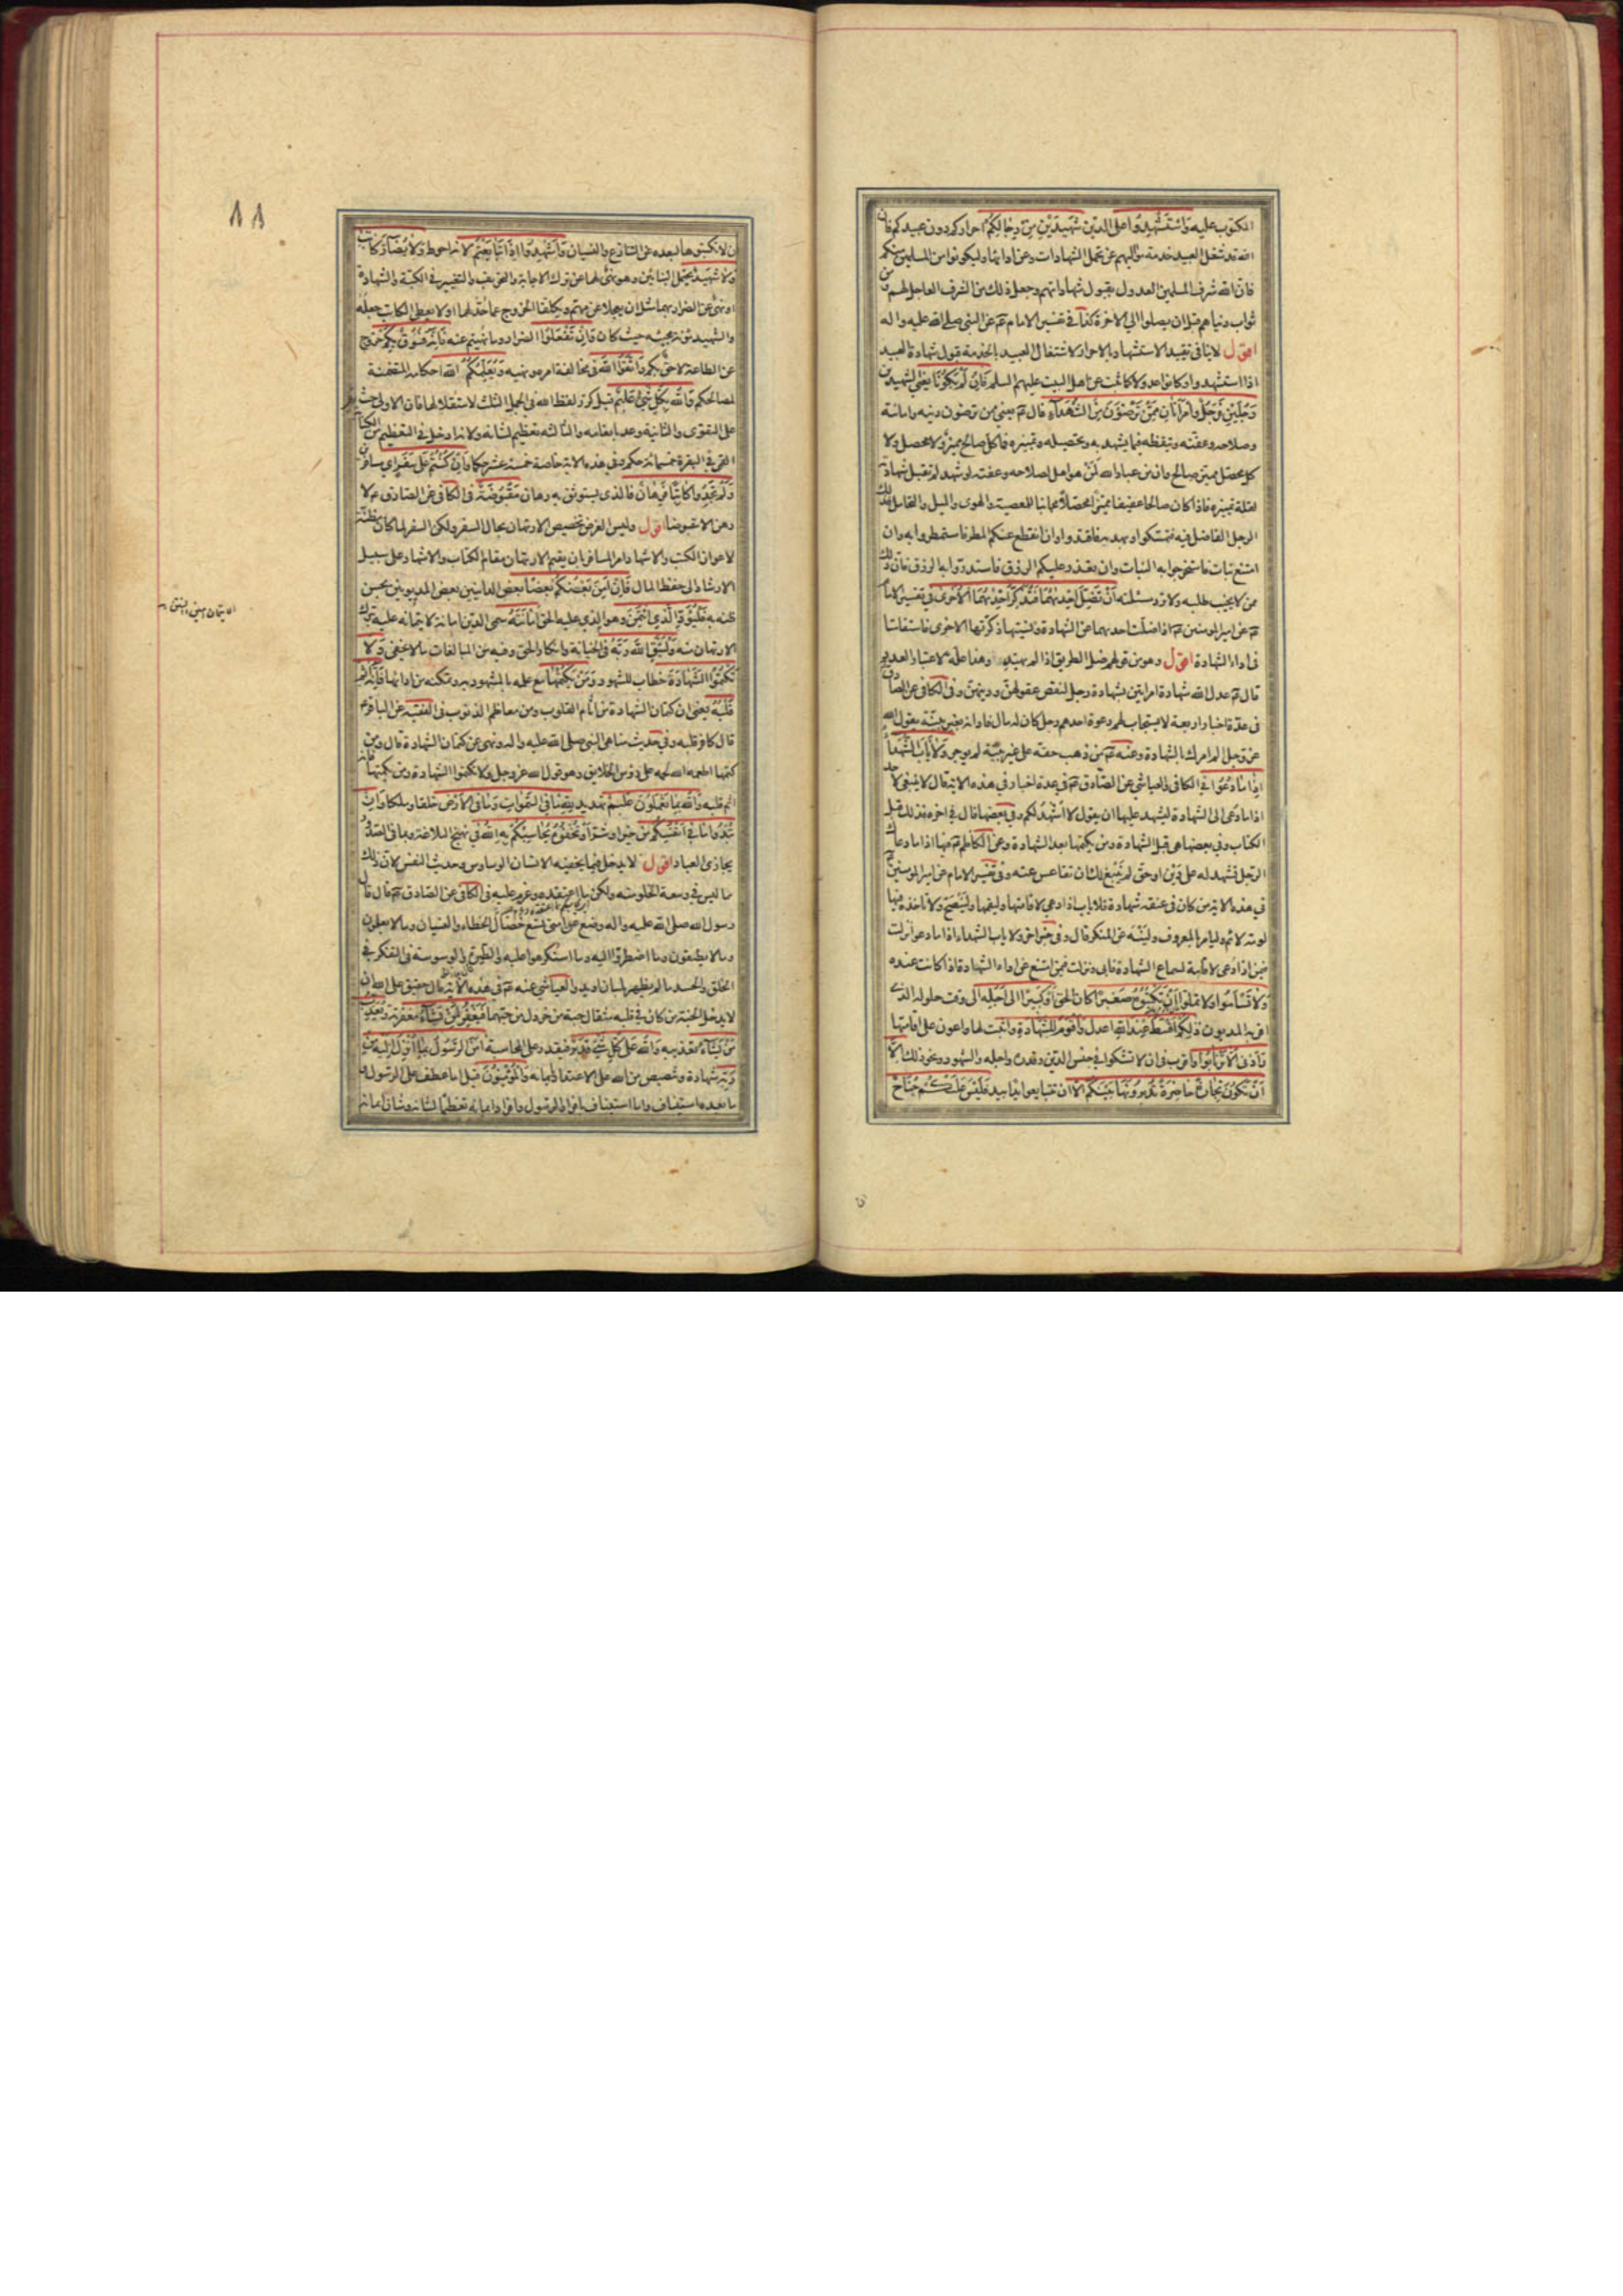 المكتوب عليه وَاسْتَشْهِدُوا على الدين شَهِيدَيْنِ مِنْ رِجَالِكُمْ احراركم دون عبيدكم فان
الله قد شغل العبيد بخدمة مواليهم عن تحمل الشهادات وعن ادائها وليكونوا من المسلمين منكم
فان الله شرف المسلمين العدول بقبول شهاداتهم وجعل ذلك من الشرف العاجل لهم من
ثواب دنياهم قبل ان يصلوا الى الاخرة كذا في تفسير الامام عن النبي صلى الله عليه واله
اقول لاينافى تقييد الاستشهاد بالاحرار لاشتغال العبيد بالخدمة قبول شهادة العبيد
اذا استشهدوا وكانوا عدولا كما ثبت عن اهل البيت عليهم السلم فَإِنْ لَمْ يَكُونَا يعنى الشهيدين
رَجُلَيْنِ فَرَجُلٌ وَامْرَأَتَانِ مِمَّنْ تَرْضَوْنَ مِنَ الشُّهَدَاءِ قال يعنى ممن ترضون دينه وامانته
وصلاحه وعفته وتيقظه فيما يشهد به وتحصيله وتمييزه فما كل صالح مميز ولا محصل ولا
كل محصل مميز صالح وان من عباد الله لمن هو اهل لصلاحه وعفته لو شهد لم تقبل شهادته
لقلة تمييزه فاذا كان صالحا عفيفا مميزا محصلا مجانبا للمعصية والهوى والميل والتحامل فذلك
الرجل الفاضل فيه فتمسكوا وبهديه فاقتدوا وان انقطع عنكم المطر فاستمطروا به وان
امتنع نبات فاستخرجوا به النبات وان تعذر عليكم الرزق فاستدروا به الرزق فان ذلك
ممن لا يخيب طلبه ولا ترد مسئلته أَنْ تَضِلَّ إِحْدَاهُمَا فَتُذَكِّرَ إِحْدَاهُمَا الْأُخْرَى في تفسير الامام
عن امير المؤمنين اذا ضلت احديهما عن الشهادة ونسيتها ذكرتها الاخرى فاستقامتا
في اداء الشهادة اقول وهو من قولهم ضل الطريق اذا لم يهتد وهذا علة لاعتبار العدد
قال عدل الله شهادة امراتين بشهادة رجل لنقص عقولهن ودينهن وفى الكافى عن الصادق
في عدة اخبار اربعة لا يستجاب لهم دعوة احدهم رجل كان له مال فادانه بغير بينة يقول الله
عز وجل الم امرك بالشهادة وعنه من ذهب حقه على غير بينة لم يوجر وَلَا يَأْبَ الشُّهَدَاءُ
إِذَا مَا دُعُوا في الكافى والعياشى عن الصادق في عدة اخبار في هذه الاية قال لا ينبغى لاحد
اذا ما دعى الى الشهادة ليشهد عليها ان يقول لا اشهد لكم وفي بعضها قال في اخره فذلك قبل
الكتاب وفي بعضها هى قبل الشهادة ومن يكتمها بعد الشهادة وعن الكاظم فيها اذا ما دعاك
الرجل تشهد له على دين او حق لم ينبغ لك ان تقاعس عنه وفي تفسير الامام عن امير المؤمنين
في هذه الاية من كان فى عنقه شهادة فلا ياب اذا دعى لاقامتها وليقمها ولينصح ولا تاخذه فيها
لومة لائم وليامر بالمعروف ولينه عن المنكر قال وفي خبر اخر ولا ياب الشهداء اذا ما دعوا نزلت
فيمن اذا دعى لاقامة لسماع الشهادة فابى ونزلت فيمن امتنع عن اداء الشهادة اذا كانت عنده
وَلَا تَسْأَمُوا ولا تملوا أَنْ تَكْتُبُوهُ صَغِيرًا كان الحق أَوْ كَبِيرًا إِلَى أَجَلِهِ الى وقت حلوله الذى
اقر به المديون ذَلِكُمْ أَقْسَطُ عِنْدَ اللَّهِ اعدل وَأَقْوَمُ لِلشَّهَادَةِ واثبت لها واعون على اقامتها
وَأَدْنَى أَلَّا تَرْتَابُوا واقرب فى ان لا تشكوا في جنس الدين وقدره واجله والشهود ونحو ذلك إِلَّا
أَنْ تَكُونَ تِجَارَةً حَاضِرَةً تُدِيرُونَهَا بَيْنَكُمْ الا ان تتبايعوا يدا بيد فَلَيْسَ عَلَيْكُمْ جُنَاحٌ
ان لا تكتبوها لبعده عن التنازع والنسيان وَأَشْهِدُوا إِذَا تَبَايَعْتُمْ لانه احوط وَلَا يُضَارَّ كَاتِبٌ
وَلَا شَهِيدٌ يحتمل البنائين وهو نهى لهما عن ترك الاجابة والتحريف والتغيير في الكتبة والشهادة
او نهى عن الضرار بهما مثل ان يعجلا عن مهم ويكلفا الخروج عما حد لهما او لا يعطى الكاتب جعله
والشهيد مؤنة مجيئه حيث كان وَإِنْ تَفْعَلُوا الضرار وما نهيتم عنه فَإِنَّهُ فُسُوقٌ بِكُمْ خروج
عن الطاعة لاحق بكم وَاتَّقُوا اللَّهَ في مخالفة امره ونهيه وَيُعَلِّمُكُمُ اللَّهُ احكامه المتضمنة
لمصالحكم وَاللَّهُ بِكُلِّ شَيْءٍ عَلِيمٌ قيل كرر لفظ الله في الجمل الثلث لاستقلالها فان الاولى حث
على التقوى والثانية وعد بانعامه والثالثة تعظيم لشانه ولانه ادخل في التعظيم من الكناية
القمى في البقرة خمسمائة حكم وفي هذه الاية خاصة خمسة عشر حكما وَإِنْ كُنْتُمْ عَلَى سَفَرٍ اى مسافرين
وَلَمْ تَجِدُوا كَاتِبًا فَرِهَانٌ فالذى يستوثق به رهان مَقْبُوضَةٌ في الكافى عن الصادق لا
رهن الا مقبوضا اقول وليس الغرض تخصيص الارتهان بحال السفر ولكن السفر لما كان مظنة
لاعواز الكتب والاشهاد امر المسافر بان يقيم الارتهان مقام الكتاب والاشهاد على سبيل
الارشاد الى حفظ المال فَإِنْ أَمِنَ بَعْضُكُمْ بَعْضًا بعض الدائنين بعض المديونين بحسن
ظنه به فَلْيُؤَدِّ الَّذِي اؤْتُمِنَ وهو الذى عليه الحق أَمَانَتَهُ سمى الدين امانة لايتمانه عليه بترك
الارتهان منه وَلْيَتَّقِ اللَّهَ رَبَّهُ في الخيانة وانكار الحق وفيه من المبالغات ما لا يخفى وَلَا
تَكْتُمُوا الشَّهَادَةَ خطاب للشهود وَمَنْ يَكْتُمْهَا مع علمه بالمشهود به وتمكنه من ادائها فَإِنَّهُ آثِمٌ
قَلْبُهُ يعنى ان كتمان الشهادة من اثام القلوب ومن معاظم الذنوب في الفقيه عن الباقر
قال كافر قلبه وفي حديث مناهى النبى صلى الله عليه واله ونهى عن كتمان الشهادة قال ومن
كتمها اطعمه الله لحمه على رؤس الخلايق وهو قول الله عز وجل ولا تكتموا الشهادة ومن يكتمها فانه
اثم قلبه وَاللَّهُ بِمَا تَعْمَلُونَ عَلِيمٌ تهديد لِلَّهِ مَا فِي السَّمَوَاتِ وَمَا فِي الْأَرْضِ خلقا وملكا وَإِنْ
تُبْدُوا مَا فِي أَنْفُسِكُمْ من خير او شر أَوْ تُخْفُوهُ يُحَاسِبْكُمْ بِهِ اللَّهُ في نهج البلاغة وبما في الصدور
يجازى العباد اقول لا يدخل فيما يخفيه الانسان الوساوس وحديث النفس لان ذلك
مما ليس في وسعه الخلو منه ولكن ما اعتقده وعزم عليه في الكافى عن الصادق قال قال
رسول الله صلى الله عليه واله وضع عن امتى تسع خصال الخطاء والنسيان وما لا يعلمون
وما لا يطيقون وما اضطروا اليه وما استكرهوا عليه والطيرة والوسوسة في التفكر في
الخلق والحسد ما لم يظهر بلسان او يد والعياشى عنه في هذه الاية قال حقيق على الله ان
لا يدخل الجنة من كان في قلبه مثقال حبة من خردل من حبهما فَيَغْفِرُ لِمَنْ يَشَاءُ مغفرته وَيُعَذِّبُ
مَنْ يَشَاءُ تعذيبه وَاللَّهُ عَلَى كُلِّ شَيْءٍ قَدِيرٌ فيقدر على المحاسبة آمَنَ الرَّسُولُ بِمَا أُنْزِلَ إِلَيْهِ مِنْ
رَبِّهِ شهادة وتنصيص من الله على الاعتداد بايمانه وَالْمُؤْمِنُونَ قيل اما عطف على الرسول و
ما بعده استيناف واما استيناف بافراد الرسول وافراد ايمانه تعظيما لشانه وشان ايمانه